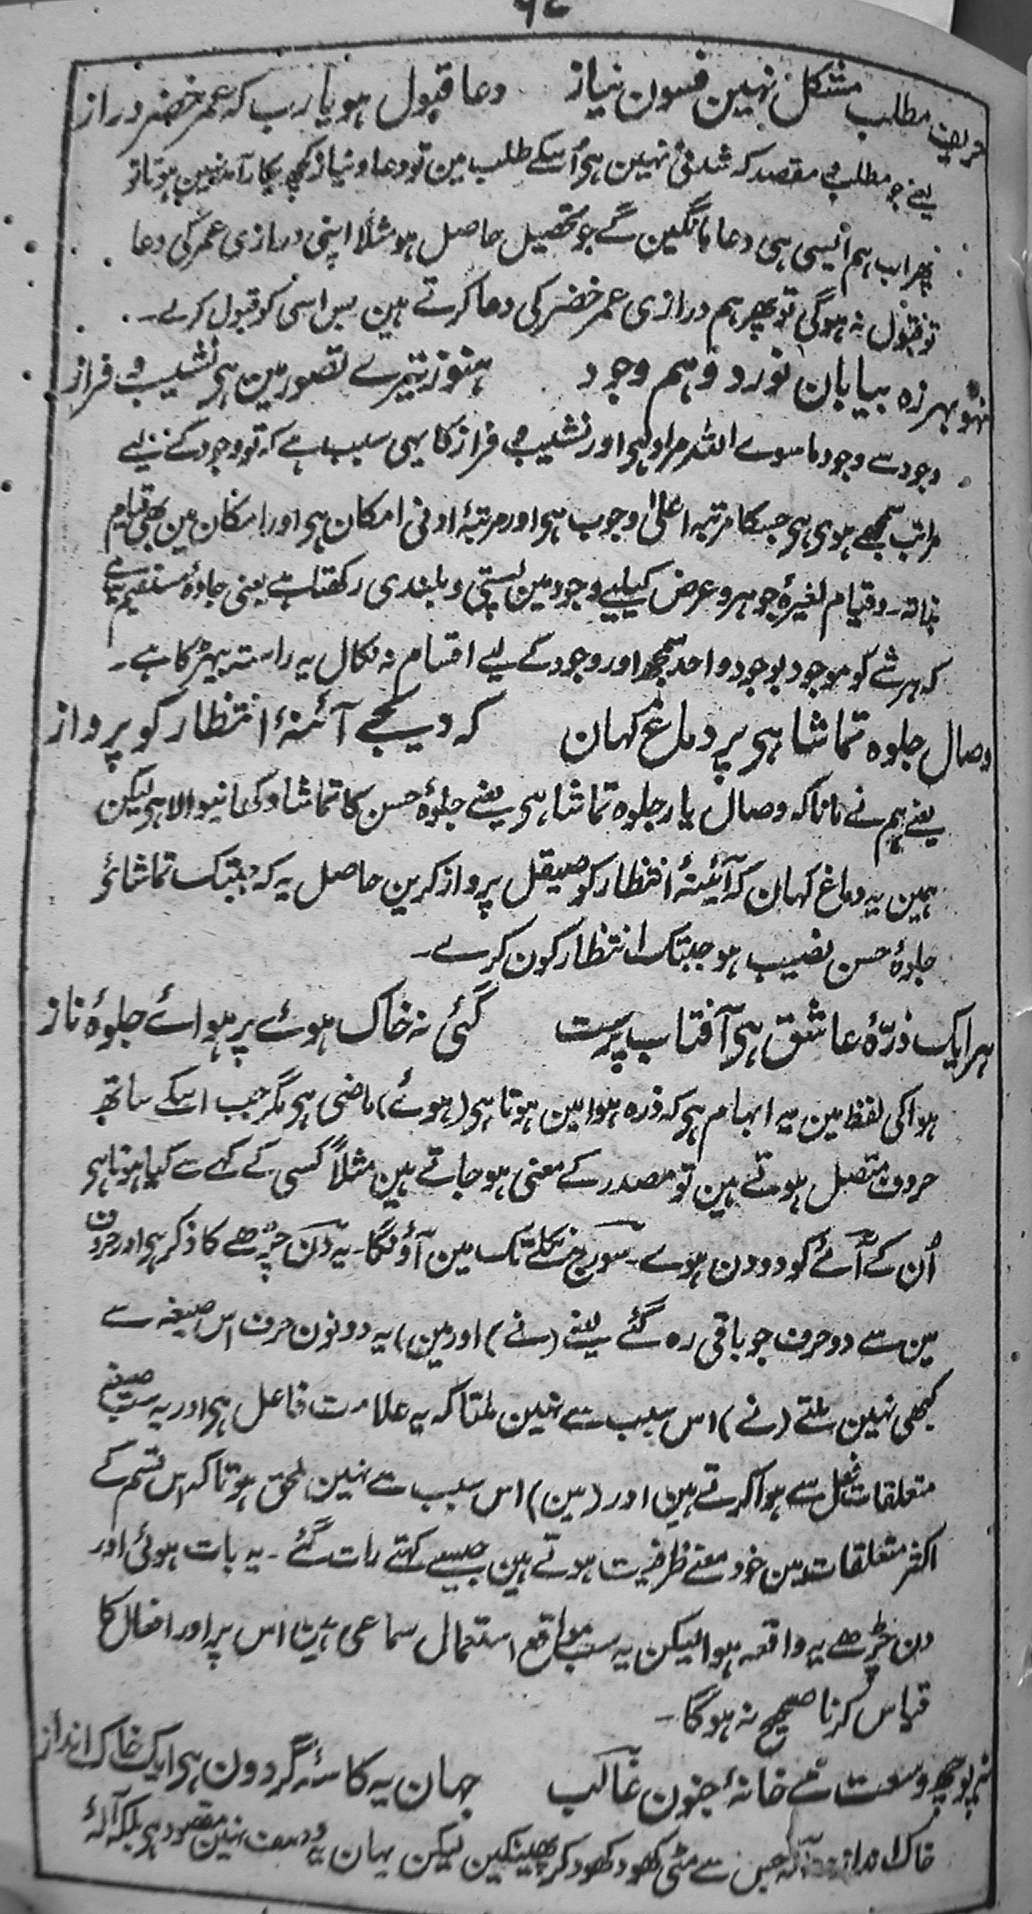 حریف مطلب مشکل نہین فسون نیاز دعا قبول ہو یا رب کہ عمر خضر دراز
یعنے جو مطلب و مقصد کہ شدنی نہین ہی اُسکے طلب مین تو دعا و نیاز کچھ بکار آمد نہین ہوتا تو
پھر اب ہم ایسی ہی دعا مانگین گے جو تحصیل حاصل ہو مثلاً اپنی درازی عمر کی دعا
تو قبول نہ ہوگی تو پھر ہم درازی عمر خضر کی دعا کرتے ہین بس اسی کو قبول کر لے۔
نہو بہرزہ بیابان نورد وہم وجود ہنوز تیرے تصور مین ہی نشیب و فراز
وجود سے وجود ماسوے اللہ مراد ہی اور نشیب و فراز کا یہی سبب ہے کہ تو وجود کے لیے
مراتب سمجھے ہوی ہی جسکا مرتبہ اعلیٰ وجوب ہی اور مرتبۂ ادنی امکان ہی اور امکان مین بھی قیام
بذاتہ۔ و قیام لغیرہٖ جوہر و عرض کیلیے وجود مین پستی و بلندی رکھتا ہے یعنی جادۂ مستقیم یہ ہے
کہ ہر شے کو موجود بوجود واحد سمجھ اور وجود کے لیے اقسام نہ نکال یہ راستہ بیہڑ کا ہے۔
وصال جلوہ تماشا ہی پر دماغ کہان کہ دیجے آئنۂ انتظار کو پرواز
یعنے ہم نے مانا کہ وصال یار جلوہ تماشا ہی یعنے جلوۂ حسن کا تماشا دکھانیوالا ہی لیکن
ہمین یہ دماغ کہان کہ آئینۂ انتظار کو صیقل پرواز کرین حاصل یہ کہ جبتک تماشائے
جلوۂ حسن نصیب ہو جبتک انتظار کون کرے۔
ہر ایک ذرّۂ عاشق ہی آفتاب پرست گئی نہ خاک ہوئے پر ہوائے جلوۂ ناز
ہوا کی لفظ مین یہ ابہام ہی کہ ذرہ ہوا مین ہوتا ہی (ہوئے) ماضی ہی مگر جب اسکے ساتھ
حروف متصل ہوتے ہین تو مصدر کے معنی ہو جاتے ہین مثلاً کسی کے کہے سے کیا ہوتا ہی
اُن کے آئے کو دو دن ہوے۔ سورج نکلے تک مین آؤنگا۔ یہ دن چڑھے کا ذکر ہی اور حروف
مین سے دو حرف جو باقی رہ گئے یعنے (نے) اور (مین) یہ دونون حرف اس صیغہ سے
کبھی نہین ملتے (نے) اس سبب سے نہین ملتا کہ یہ علامت فاعل ہی اور یہ سب صیغے
متعلقات فعل سے ہوا کرتے ہین اور (مین) اس سبب سے نہین ملحق ہوتا کہ اس قسم کے
اکثر متعلقات مین خود معنے ظرفیت ہوتے ہین جیسے کہتے رات گئے۔ یہ بات ہوئی اور
دن چڑھے یہ واقعہ ہوا لیکن یہ سب مواقع استعمال سماعی ہین اس پر اور افعال کا
قیاس کرنا صحیح نہ ہوگا۔
نہ پوچھ وسعت مے خانۂ جنون غالب جہان یہ کاسۂ گردون ہی ایک خاک انداز
خاک انداز جس سے مٹی کھود کھود کر پھینکین لیکن یہان وہ وسعت نہین مقصود ہی بلکہ آلۂ